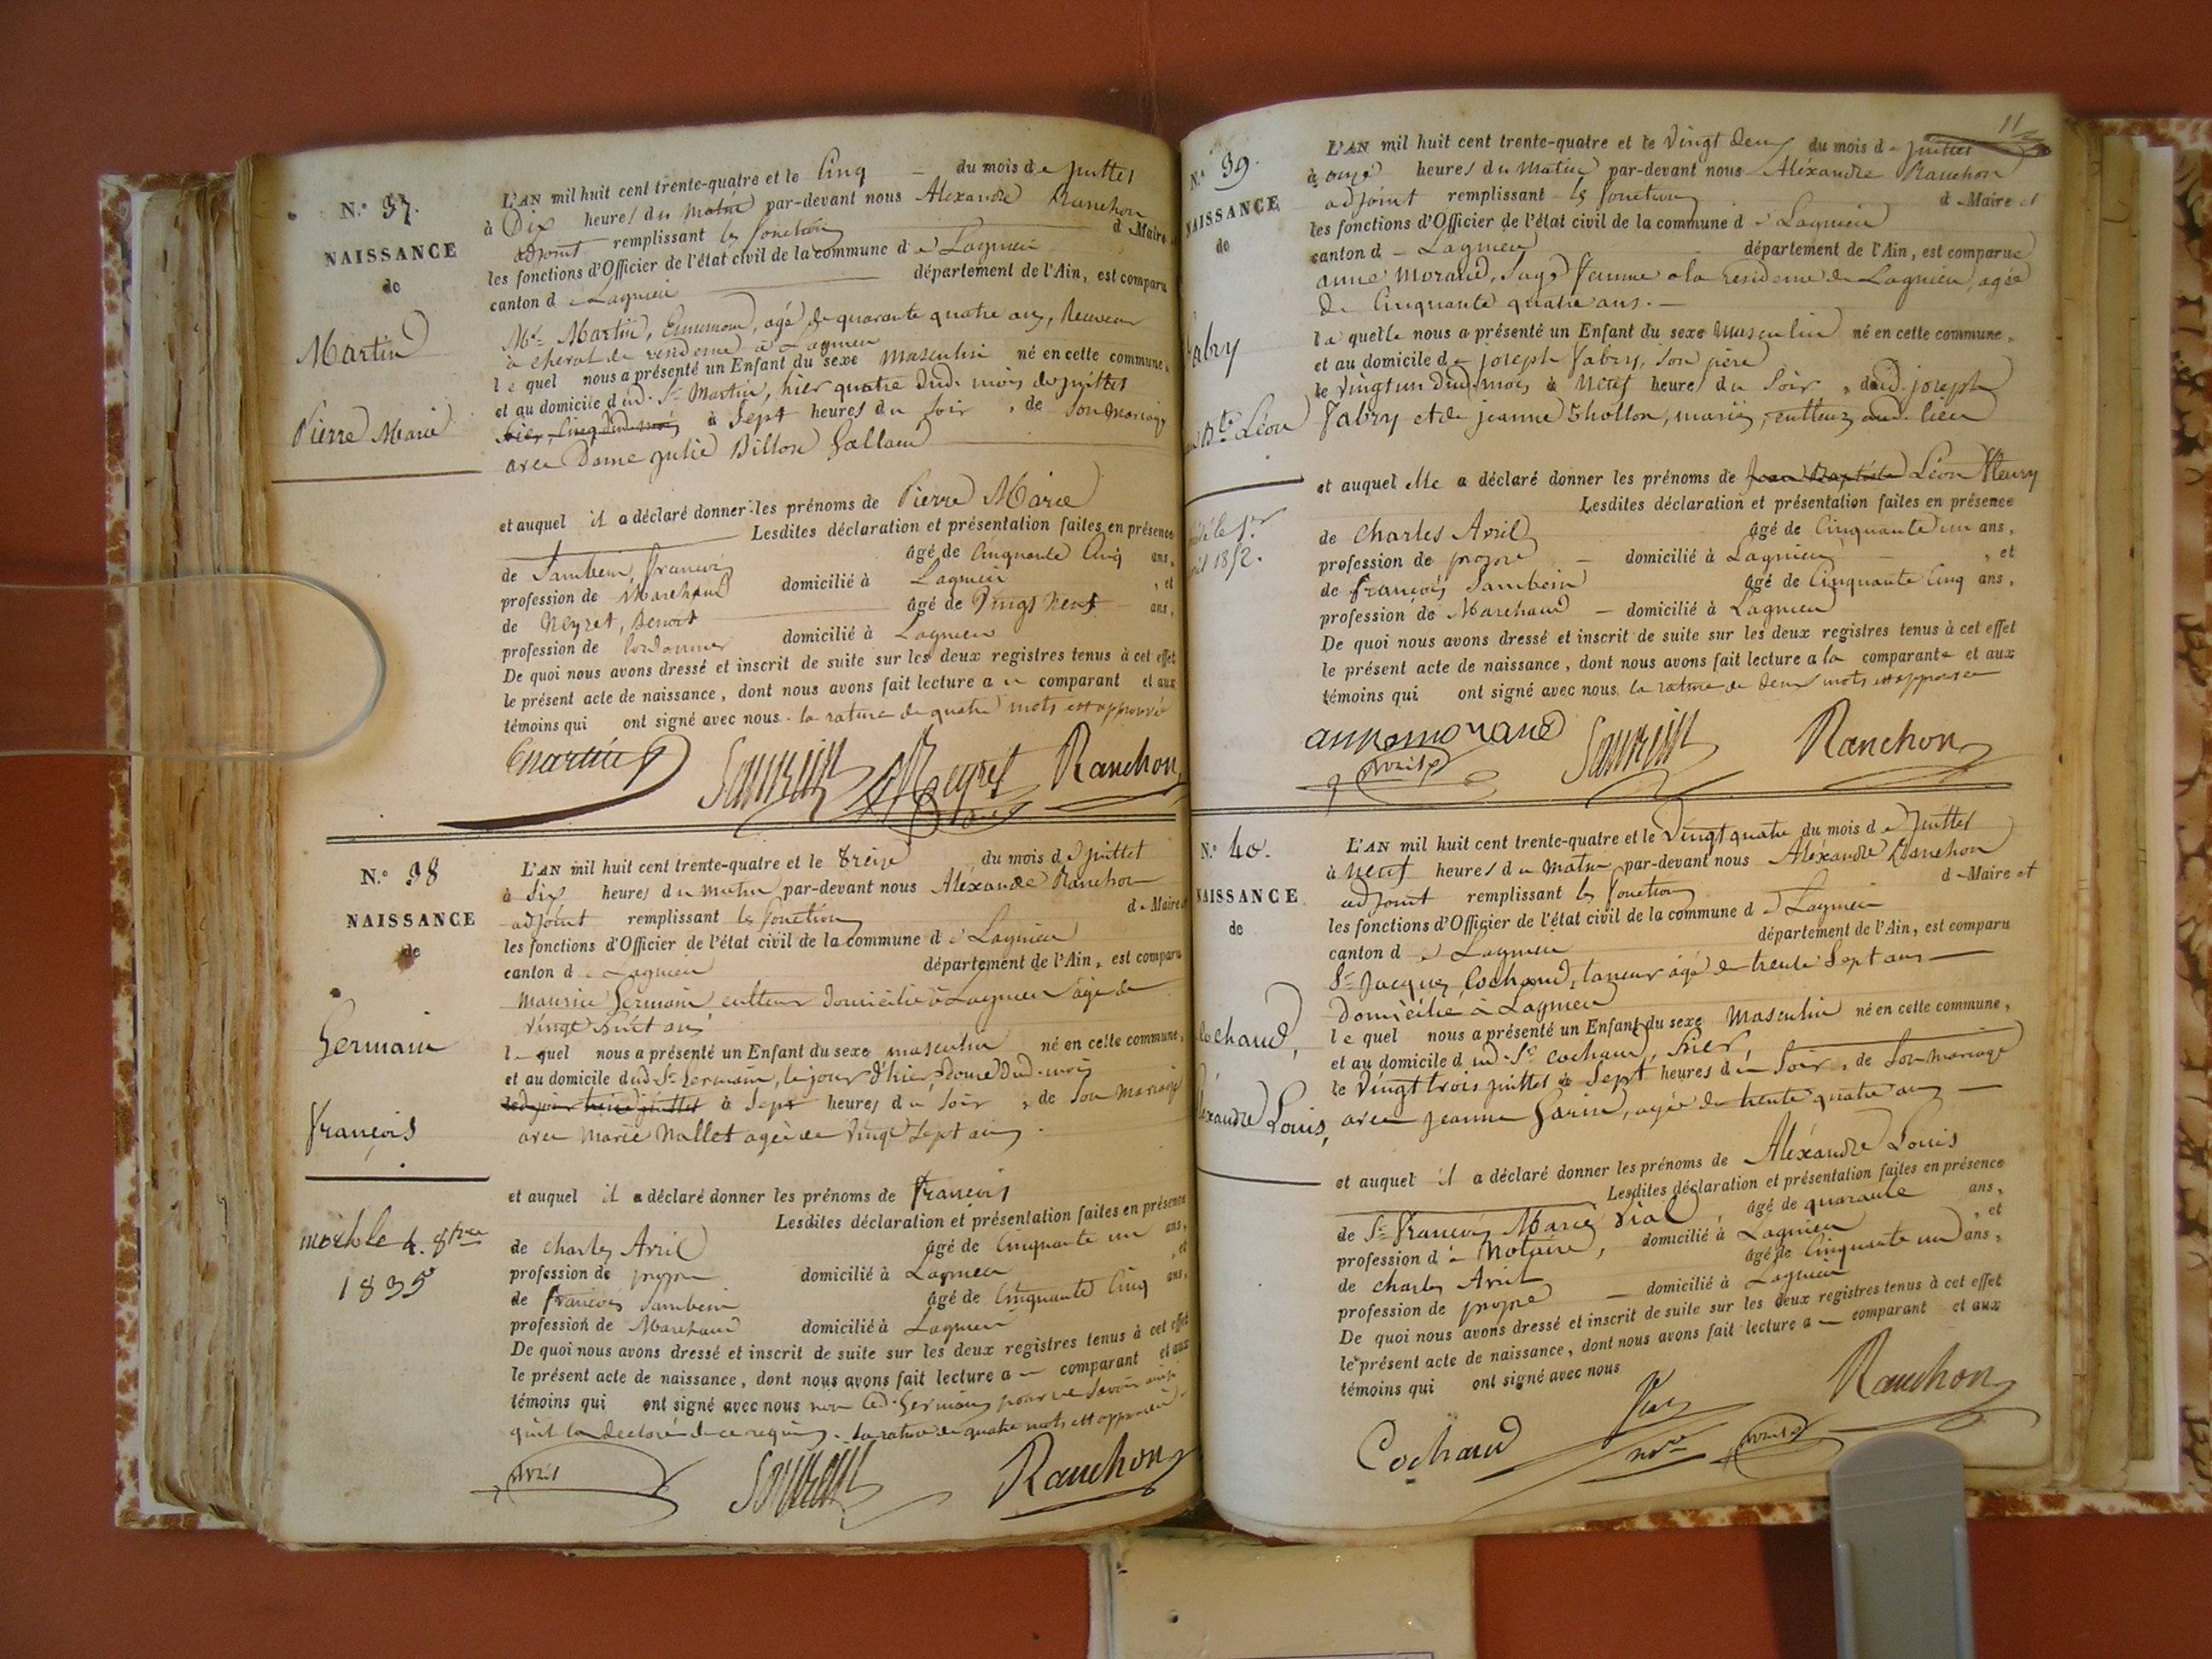 N.° 37.
NAISSANCE
de
Martin
Pierre Marie
L'AN mil huit cent trente-quatre et le Cinq du mois de juillet
à Dix heures du matin par-devant nous Aléxandre Ranchon
adjoint remplissant les fonctions d Maire
les fonctions d'Officier de l'état civil de la commune de Lagnieu
canton de Lagnieu département de l'Ain, est comparu
Mr Martin, agé de quarante quatre ans,
à cheval de residence à Lagnieu
le quel nous a présenté un Enfant du sexe masculin né en cette commune,
et au domicile dud. Sr Martin, hier quatre dud. mois de juillet
à Sept heures du soir, de son mariage
avec Dame julie Billon Galland
et auquel il a déclaré donner les prénoms de Pierre Marie
Lesdites déclaration et présentation faites en présence
de Sambein, françois âgé de Cinquante Cinq ans,
profession de Marchand domicilié à Lagnieu, et
de Neyret, Benoit âgé de Vingt Neuf ans,
profession de Cordonnier domicilié à Lagnieu
De quoi nous avons dressé et inscrit de suite sur les deux registres tenus à cet effet
le présent acte de naissance, dont nous avons fait lecture au comparant et aux
témoins qui ont signé avec nous. la rature de quatre mots est approuvée
Neyret Ranchon
N.° 38
NAISSANCE
de
Germain
François
mort le 4. 8bre
1835
L'AN mil huit cent trente-quatre et le treize du mois de juillet
à Dix heures du matin par-devant nous Aléxandre Ranchon
adjoint remplissant les fonctions de Maire et
les fonctions d'Officier de l'état civil de la commune de Lagnieu
canton de Lagnieu département de l'Ain, est comparu
Maurice Germain cultteur domicilié à Lagnieu agé de
vingt huit ans
le quel nous a présenté un Enfant du sexe masculin né en cette commune,
et au domicile dud. Sr Germain, le jour d'hier, douze dud. mois
led. jour treize juillet à Sept heures du soir, de son mariage
avec Marie Nallet agée de vingt sept ans.
et auquel il a déclaré donner les prénoms de françois
Lesdites déclaration et présentation faites en présence
de charles Avril âgé de Cinquante un ans,
profession de propre domicilié à Lagnieu, et
de françois Sambein âgé de Cinquante Cinq ans,
profession de Marchand domicilié à Lagnieu
De quoi nous avons dressé et inscrit de suite sur les deux registres tenus à cet effet
le présent acte de naissance, dont nous avons fait lecture au comparant et aux
témoins qui ont signé avec nous non led. Germain pour ne savoir ainsi
qu'il l'a déclaré de ce requis. la rature de quatre mots est approuvée
Avril Ranchon
11
N.° 39.
NAISSANCE
de
fabry
Léon
1852.
L'AN mil huit cent trente-quatre et le vingt deux du mois de juillet
à onze heures du matin par-devant nous Aléxandre Ranchon
adjoint remplissant les fonctions de Maire et
les fonctions d'Officier de l'état civil de la commune de Lagnieu
canton de Lagnieu département de l'Ain, est comparue
anne Morand, Sage femme a la residence de Lagnieu, agée
de Cinquante quatre ans.
la quelle nous a présenté un Enfant du sexe Masculin né en cette commune,
et au domicile de joseph fabry, son père
le vingt un dud. mois à Neuf heures du soir, dud. joseph
fabry et de jeanne Thollon, mariés, cultteurs aud. lieu
et auquel elle a déclaré donner les prénoms de Jean Baptiste Léon fleury
Lesdites déclaration et présentation faites en présence
de Charles Avril âgé de Cinquante un ans,
profession de propre domicilié à Lagnieu, et
de françois Sambein âgé de Cinquante Cinq ans,
profession de Marchand domicilié à Lagnieu
De quoi nous avons dressé et inscrit de suite sur les deux registres tenus à cet effet
le présent acte de naissance, dont nous avons fait lecture a la comparante et aux
témoins qui ont signé avec nous. la rature de deux mots est approuvée
anne morand Avril Ranchon
N.° 40.
NAISSANCE
de
Cochaud,
Aléxandre Louis,
L'AN mil huit cent trente-quatre et le Vingt quatre du mois de Juillet
à neuf heures du matin par-devant nous Aléxandre Ranchon
adjoint remplissant les fonctions de Maire et
les fonctions d'Officier de l'état civil de la commune de Lagnieu
canton de Lagnieu département de l'Ain, est comparu
Sr Jacques Cochaud, taneur agé de trente sept ans
domicilié à Lagnieu
le quel nous a présenté un Enfant du sexe Masculin né en cette commune,
et au domicile dud. Sr Cochaud, hier,
le Vingt trois juillet à Sept heures du Soir, de Son mariage
avec jeanne Garin, agée de trente quatre ans
et auquel il a déclaré donner les prénoms de Aléxandre Louis
Lesdites déclaration et présentation faites en présence
de Sr françois Marie Vial, âgé de quarante ans,
profession de Notaire, domicilié à Lagnieu, et
de charles Avril âgé de Cinquante un ans,
profession de propre domicilié à Lagnieu
De quoi nous avons dressé et inscrit de suite sur les deux registres tenus à cet effet
le présent acte de naissance, dont nous avons fait lecture au comparant et aux
témoins qui ont signé avec nous
Cochaud Vial nre Avril Ranchon